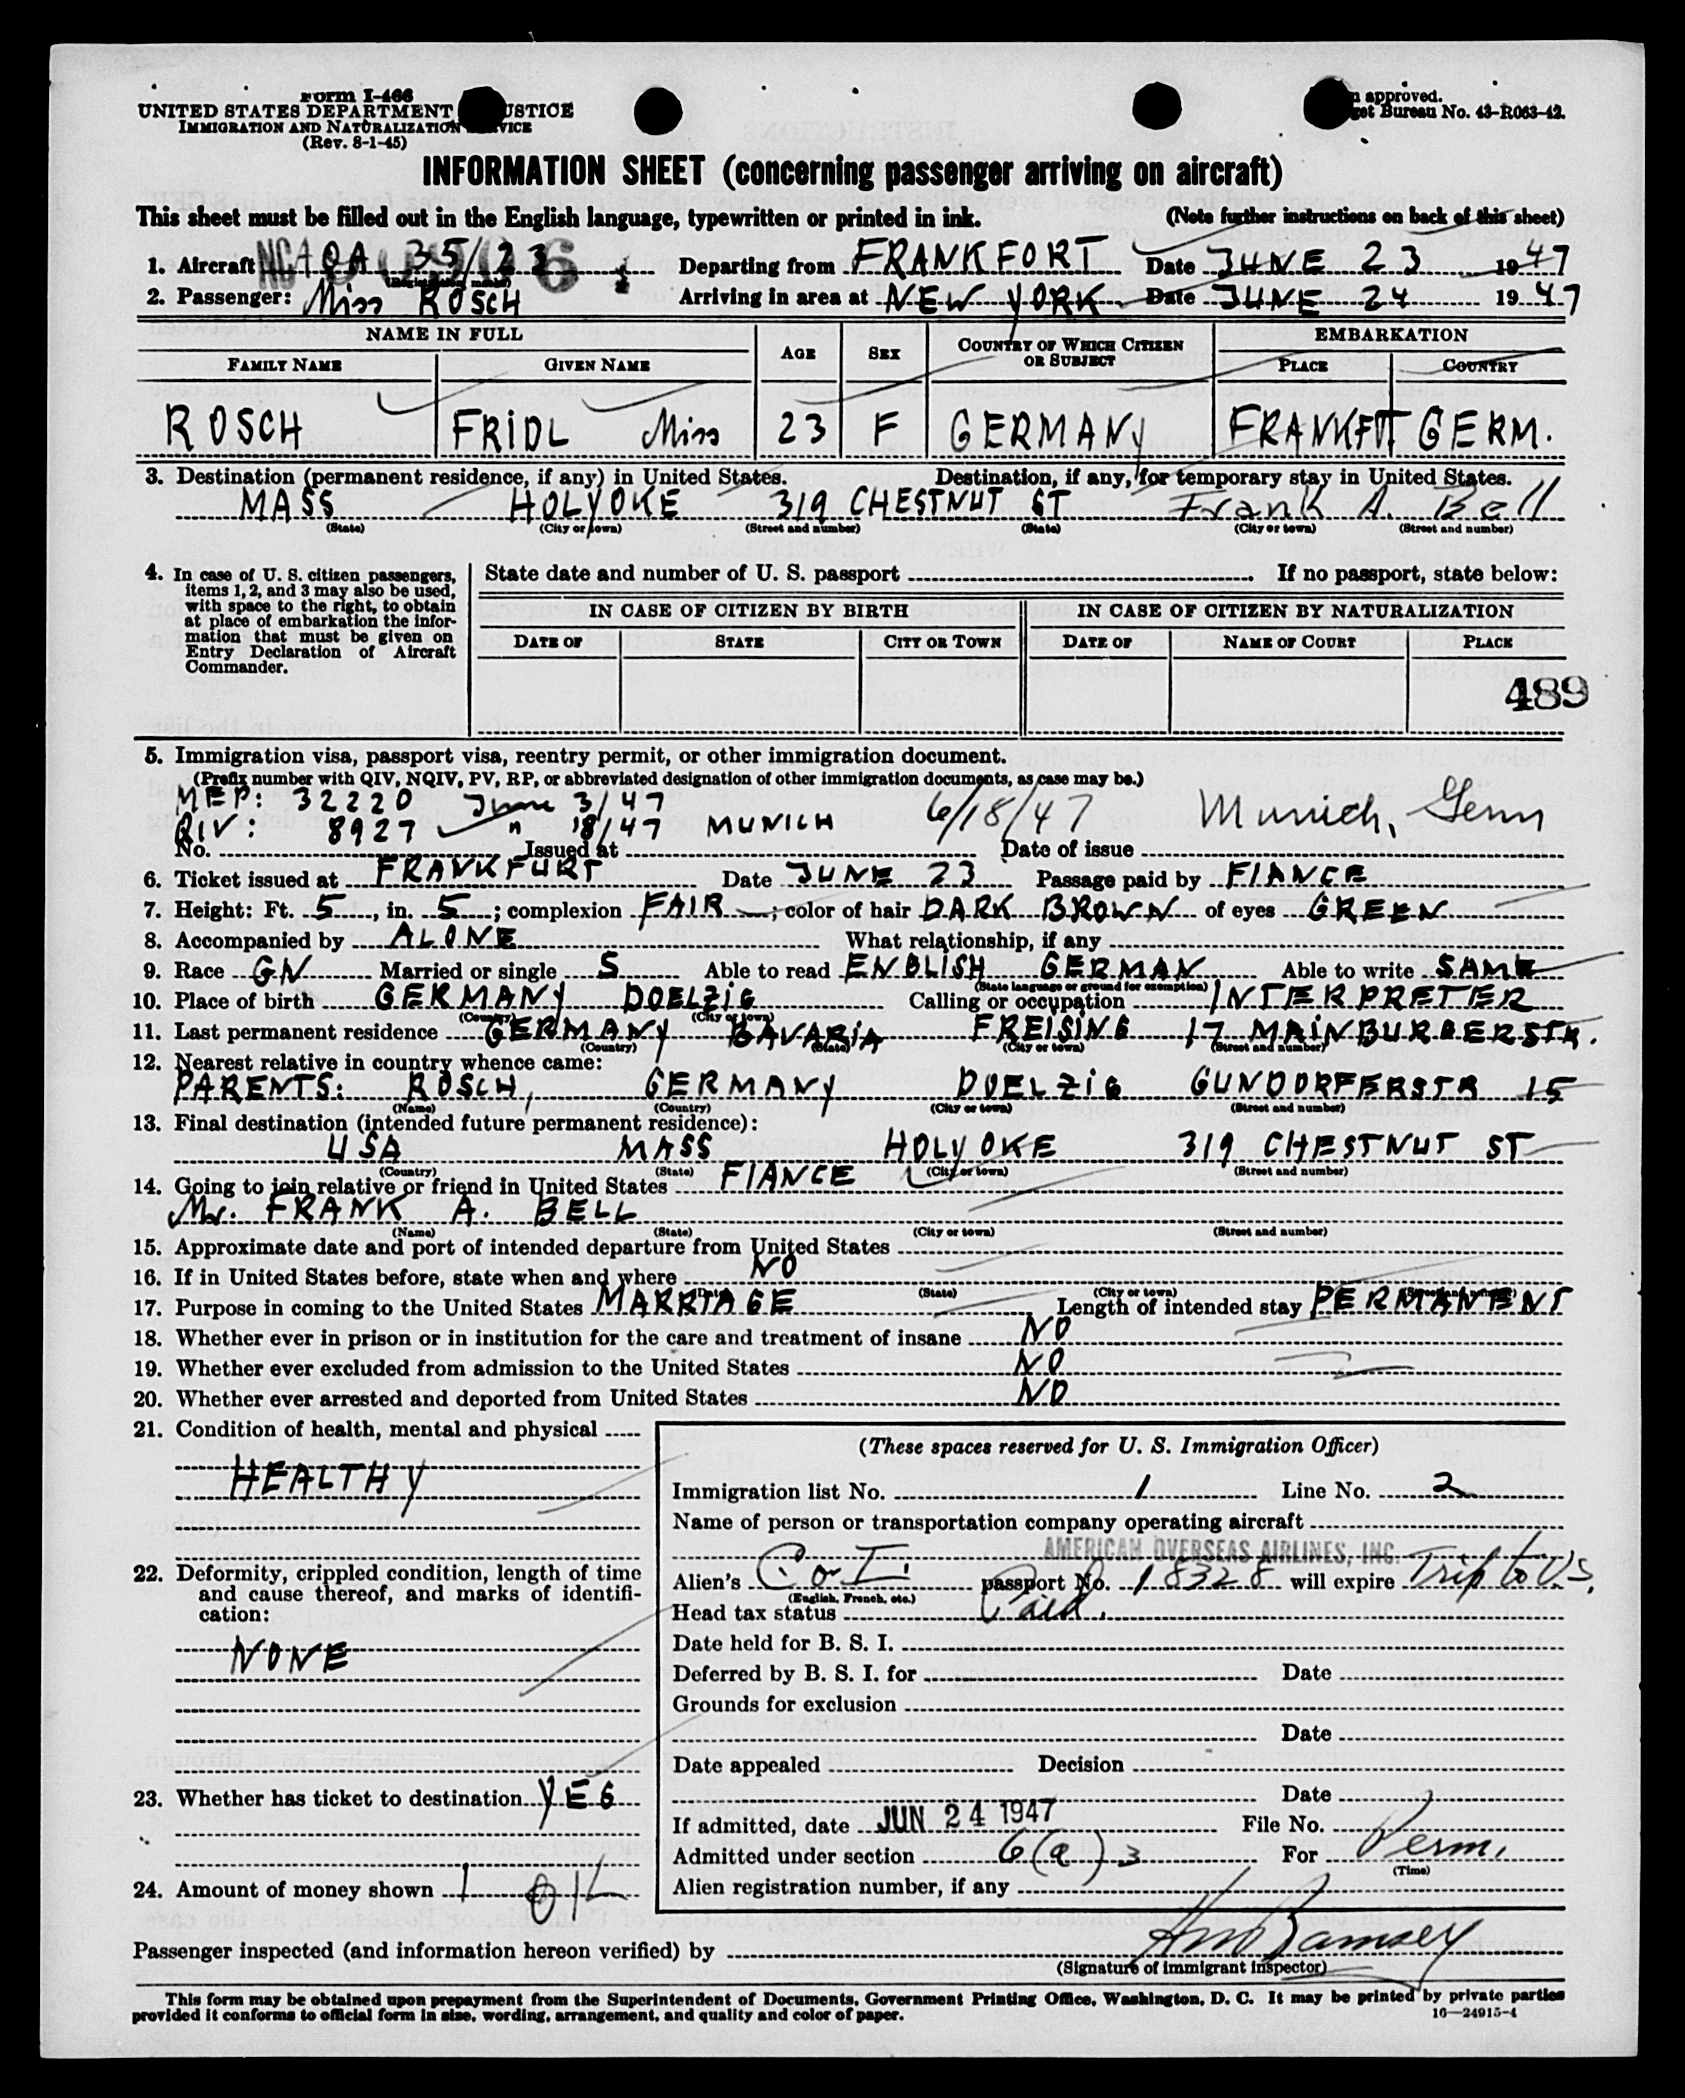 Form I-466
UNITED STATES DEPARTMENT JUSTICE
IMMIGRATION AND NATURALIZATION SERVICE
(Rev. 8-1-45)
approved.
Bureau No. 43-R063-42.
INFORMATION SHEET (concerning passenger arriving on aircraft)
This sheet must be filled out in the English language, typewritten or printed in ink. (Note further instructions on back of this sheet)
1. Aircraft NC OA 35/23 Departing from FRANKFORT Date JUNE 23 1947
2. Passenger: Miss ROSCH Arriving in area at NEW YORK Date JUNE 24 1947
NAME IN FULL AGE SEX COUNTRY OF WHICH CITIZEN OR SUBJECT EMBARKATION
FAMILY NAME GIVEN NAME PLACE COUNTRY
ROSCH FRIDL Miss 23 F GERMANY FRANKFTT GERM.
3. Destination (permanent residence, if any) in United States. Destination, if any, for temporary stay in United States.
MASS HOLYOKE 319 CHESTNUT ST Frank A. Bell
(State) (City or town) (Street and number) (State) (City or town) (Street and number)
4. In case of U. S. citizen passengers, items 1, 2, and 3 may also be used, with space to the right, to obtain at place of embarkation the information that must be given on Entry Declaration of Aircraft Commander.
State date and number of U. S. passport If no passport, state below:
IN CASE OF CITIZEN BY BIRTH IN CASE OF CITIZEN BY NATURALIZATION
DATE OF STATE CITY OR TOWN DATE OF NAME OF COURT PLACE
489
5. Immigration visa, passport visa, reentry permit, or other immigration document.
(Prefix number with QIV, NQIV, PV, RP, or abbreviated designation of other immigration documents, as case may be.)
MEP: 32220 June 3/47
QIV: 8927 " 18/47 MUNICH 6/18/47 Munich, Germ
No. Issued at Date of issue
6. Ticket issued at FRANKFURT Date JUNE 23 Passage paid by FIANCE
7. Height: Ft. 5, in. 5; complexion FAIR; color of hair DARK BROWN of eyes GREEN
8. Accompanied by ALONE What relationship, if any
9. Race GN Married or single S Able to read ENGLISH GERMAN Able to write SAME
(State language or ground for exemption)
10. Place of birth GERMANY DOELZIG Calling or occupation INTERPRETER
(Country) (City or town)
11. Last permanent residence GERMANY BAVARIA FREISING 17 MAINBURGERSTR.
(Country) (State) (City or town) (Street and number)
12. Nearest relative in country whence came:
PARENTS: ROSCH, GERMANY DOELZIG GUNDORFERSTR 15
(Name) (Country) (City or town) (Street and number)
13. Final destination (intended future permanent residence):
USA MASS HOLYOKE 319 CHESTNUT ST
(Country) (State) (City or town) (Street and number)
14. Going to join relative or friend in United States FIANCE
Mr. FRANK A. BELL
(Name) (State) (City or town) (Street and number)
15. Approximate date and port of intended departure from United States
16. If in United States before, state when and where NO
(Date) (State) (City or town) (Street and number)
17. Purpose in coming to the United States MARRIAGE Length of intended stay PERMANENT
18. Whether ever in prison or in institution for the care and treatment of insane NO
19. Whether ever excluded from admission to the United States NO
20. Whether ever arrested and deported from United States NO
21. Condition of health, mental and physical
HEALTHY
22. Deformity, crippled condition, length of time and cause thereof, and marks of identification:
NONE
23. Whether has ticket to destination YES
24. Amount of money shown 1 OK
(These spaces reserved for U. S. Immigration Officer)
Immigration list No. 1 Line No. 2
Name of person or transportation company operating aircraft
AMERICAN OVERSEAS AIRLINES, INC.
Alien's C or I. passport No. 18328 will expire Trip to U S.
(English, French, etc.)
Head tax status Paid.
Date held for B. S. I.
Deferred by B. S. I. for Date
Grounds for exclusion
Date
Date appealed Decision
Date
If admitted, date JUN 24 1947 File No.
Admitted under section 6(a)3 For Perm.
(Time)
Alien registration number, if any
Passenger inspected (and information hereon verified) by Ramsey
(Signature of immigrant inspector)
This form may be obtained upon prepayment from the Superintendent of Documents, Government Printing Office, Washington, D. C. It may be printed by private parties
provided it conforms to official form in size, wording, arrangement, and quality and color of paper. 16—24915-4